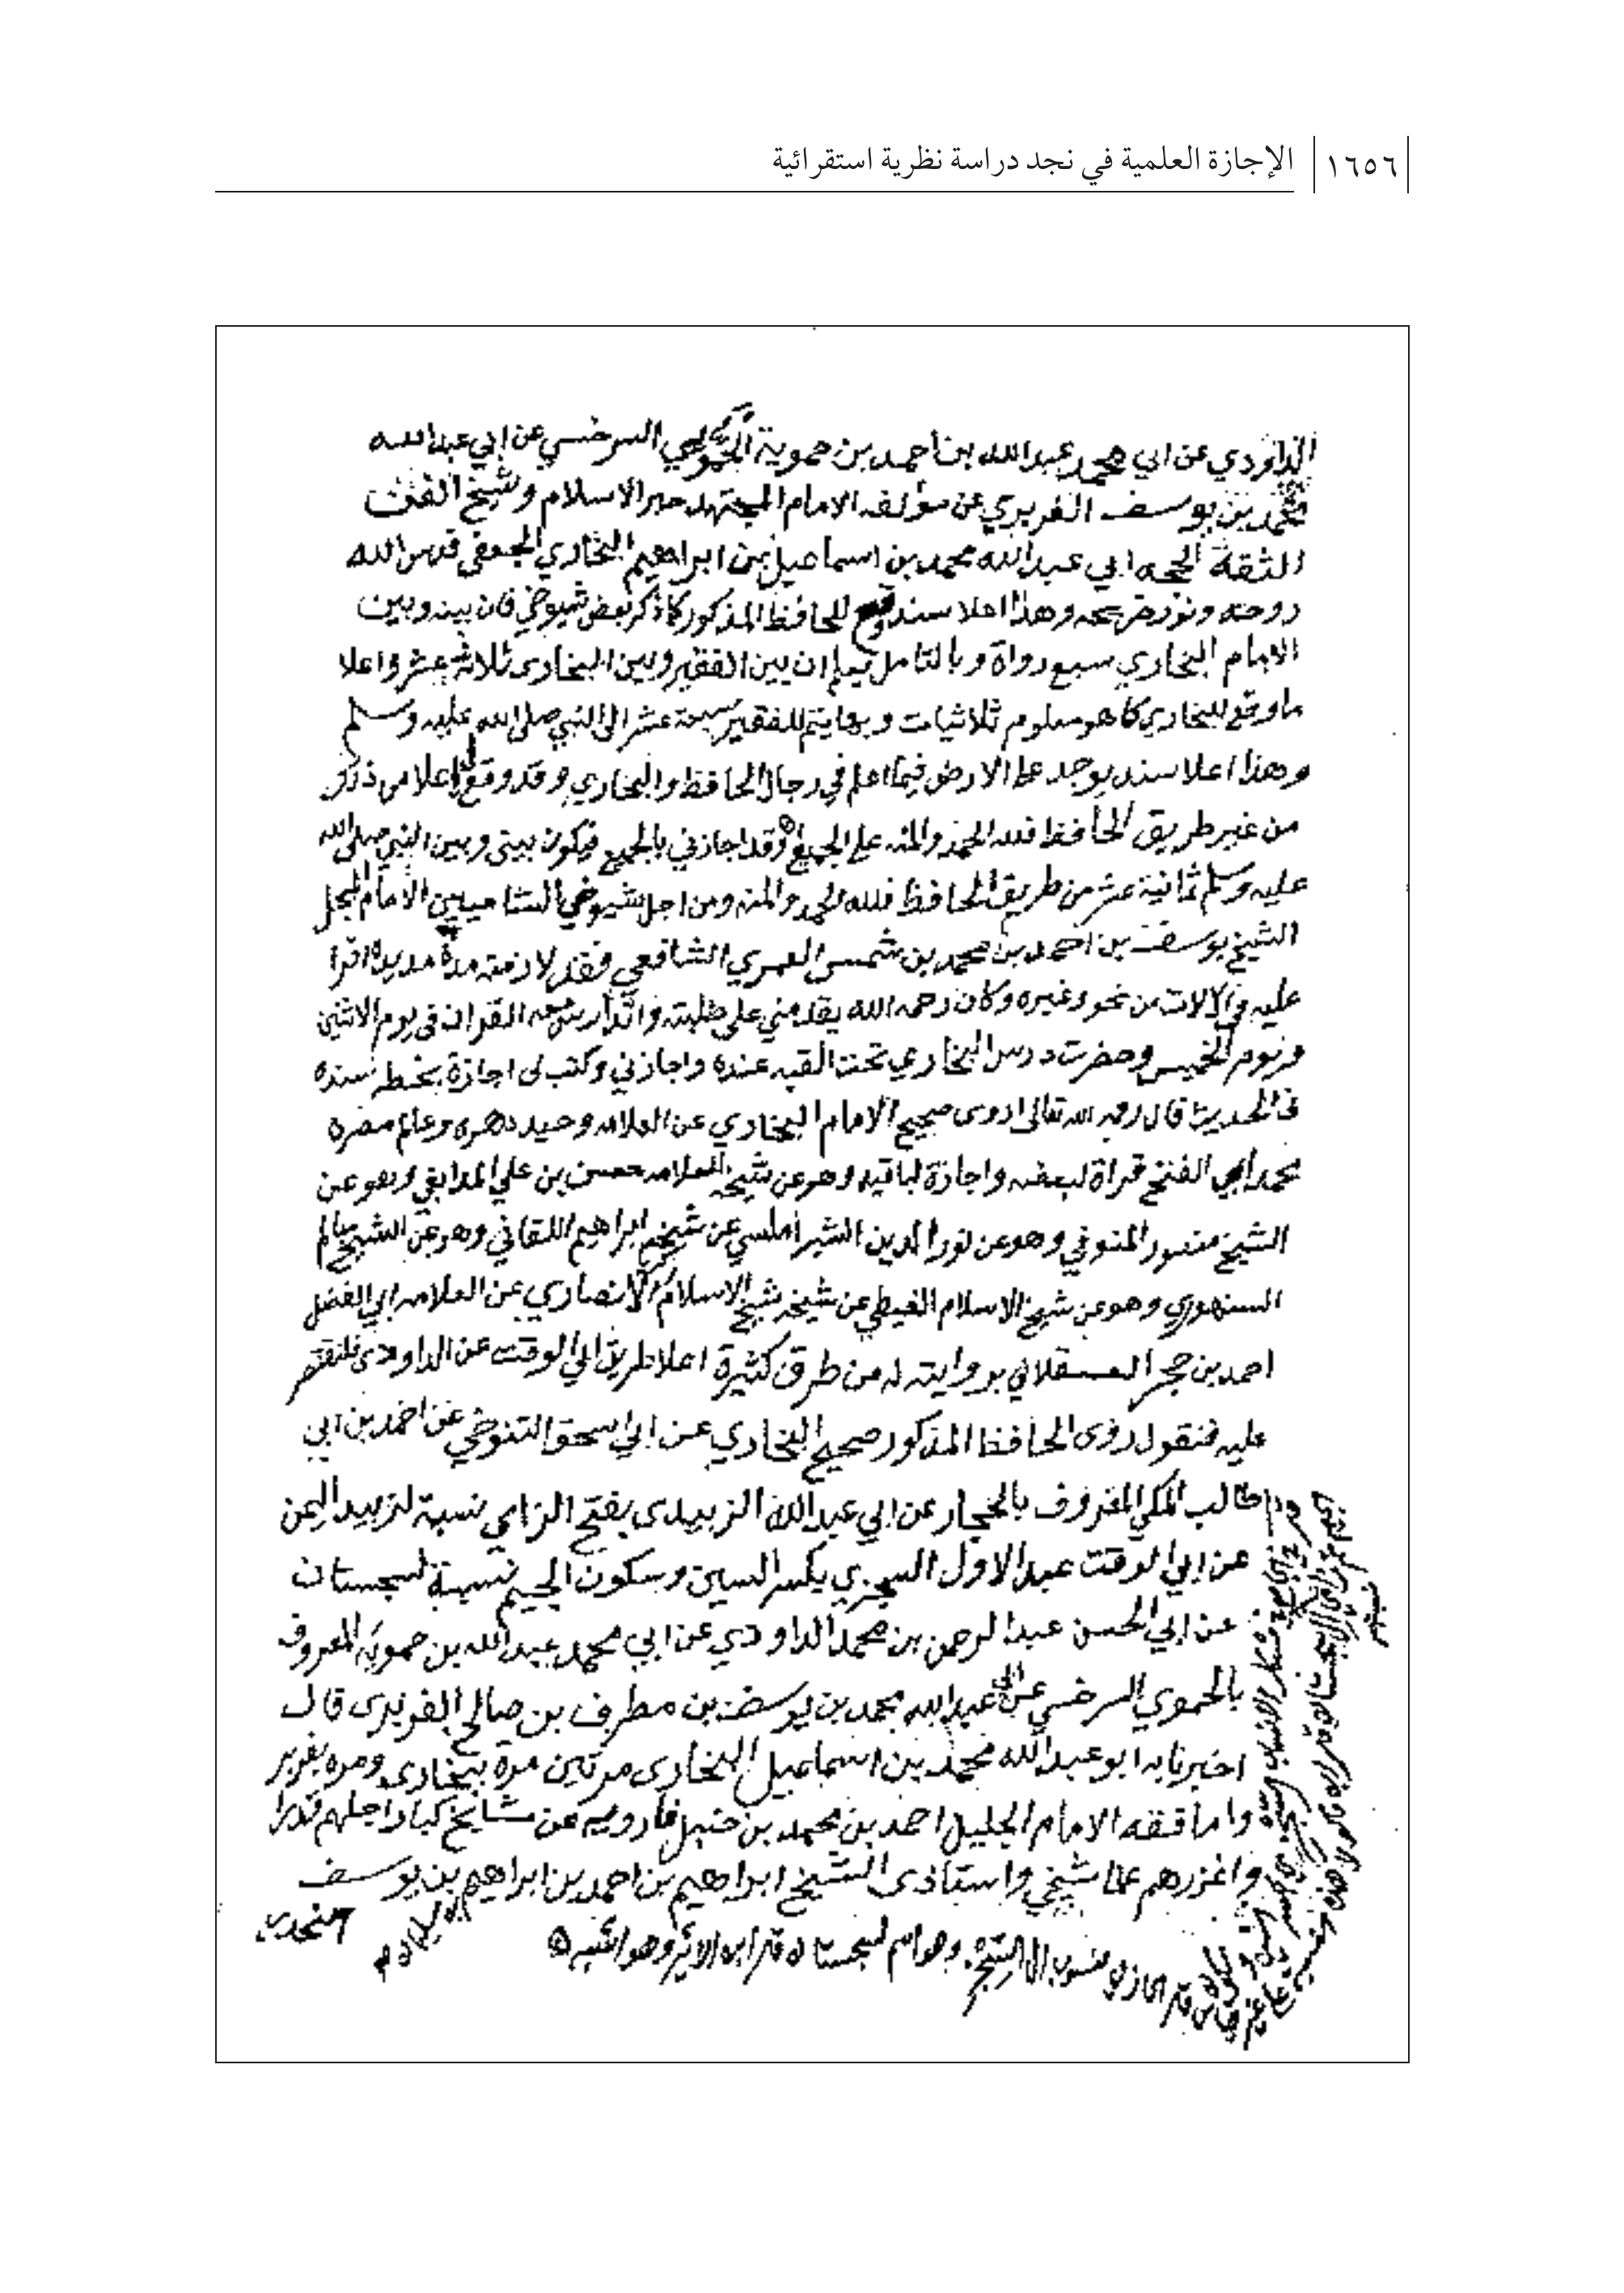 ١٦٥٦ الإجازة العلمية في نجد دراسة نظرية استقرائية
الداودي عن ابي محمد عبدالله بن أحمد بن حموية الحموي السرخسي عن ابي عبدالله
محمد بن يوسف الفربري عن مؤلفه الامام المجتهد حبر الاسلام وشيخ الفن
الثقة الحجه ابي عبدالله محمد بن اسماعيل بن ابراهيم البخاري الجعفي قدس الله
روحه ونور ضريحه وهذا اعلا سند وقع للحافظ المذكور كما ذكر بعض شيوخي فان بينه وبين
الامام البخاري سبع رواة وبالتامل يعلم ان بين الفقير وبين البخاري ثلاثة عشر واعلا
ما وقع للبخاري كما هو معلوم ثلاثيات وبها يتم للفقير سبعة عشر الى النبي صلى الله عليه وسلم
وهذا اعلا سند يوجد على الارض فيما اعلم في رجال الحافظ والبخاري وقد وقع لي اعلا من ذلك
من غير طريق الحافظ فلله الحمد والمنه على الجميع وقد اجازني بالجميع فيكون بيني وبين النبي صلى الله
عليه وسلم ثمانية عشر من طريق الحافظ فلله الحمد والمنه ومن اجل شيوخي الشاميين الامام المبجل
الشيخ يوسف بن احمد بن محمد بن شمس العمري الشافعي فقد لازمته مدة مديدة اقرا
عليه في الالات من نحو وغيره وكان رحمه الله يقدمني على طلبته القران في يوم الاثنين
ويوم الخميس وحضرت درس البخاري تحت القبه عنده واجازني وكتب لى اجازة بخطه سنده
في الحديث قال رحمه الله تعالى اروى صحيح الامام البخاري عن العلامه وحيد دهره وعالم مصره
محمد ابي الفتح قراة لبعضه واجازة لباقيه وهو عن شيخه العلامه حسن بن علي المدابغي وهو عن
الشيخ منصور المنوفي وهو عن نور الدين الشبراملسي عن شيخه ابراهيم اللقاني وهو عن الشيخ سالم
السنهوري وهو عن شيخ الاسلام الغيطي عن شيخه شيخ الاسلام الانصاري عن العلامه ابي الفضل
احمد بن حجر العسقلاني بروايته له من طرق كثيرة اعلا طريق ابي الوقت عن الداودى فلنقتصر
عليه فنقول روى الحافظ المذكور صحيح البخاري عن ابي اسحق التنوخي عن احمد بن ابي
طالب المكي المعروف بالحجار عن ابي عبدالله الزبيدى بفتح الزاي نسبة لزبيد اليمن
عن ابي الوقت عبد الاول السجزي بكسر السين وسكون الجيم نسبة لسجستان
عن ابي الحسن عبدالرحمن بن محمد الداودي عن ابي محمد عبدالله بن حمويه المعروف
بالحموي السرخسي عن ابي عبدالله محمد بن يوسف بن مطرف بن صالح الفربرى قال
اخبرنا به ابو عبدالله محمد بن اسماعيل البخارى مرتين مرة ببخارى ومره بفربر
واما فقه الامام الجليل احمد بن محمد بن حنبل فارويه عن مشايخ كبار اجلهم قدرا
واغزرهم علما شيخي واستاذى الشيخ ابراهيم بن احمد بن ابراهيم بن يوسف
النجدى
وهو اسم لسجستان